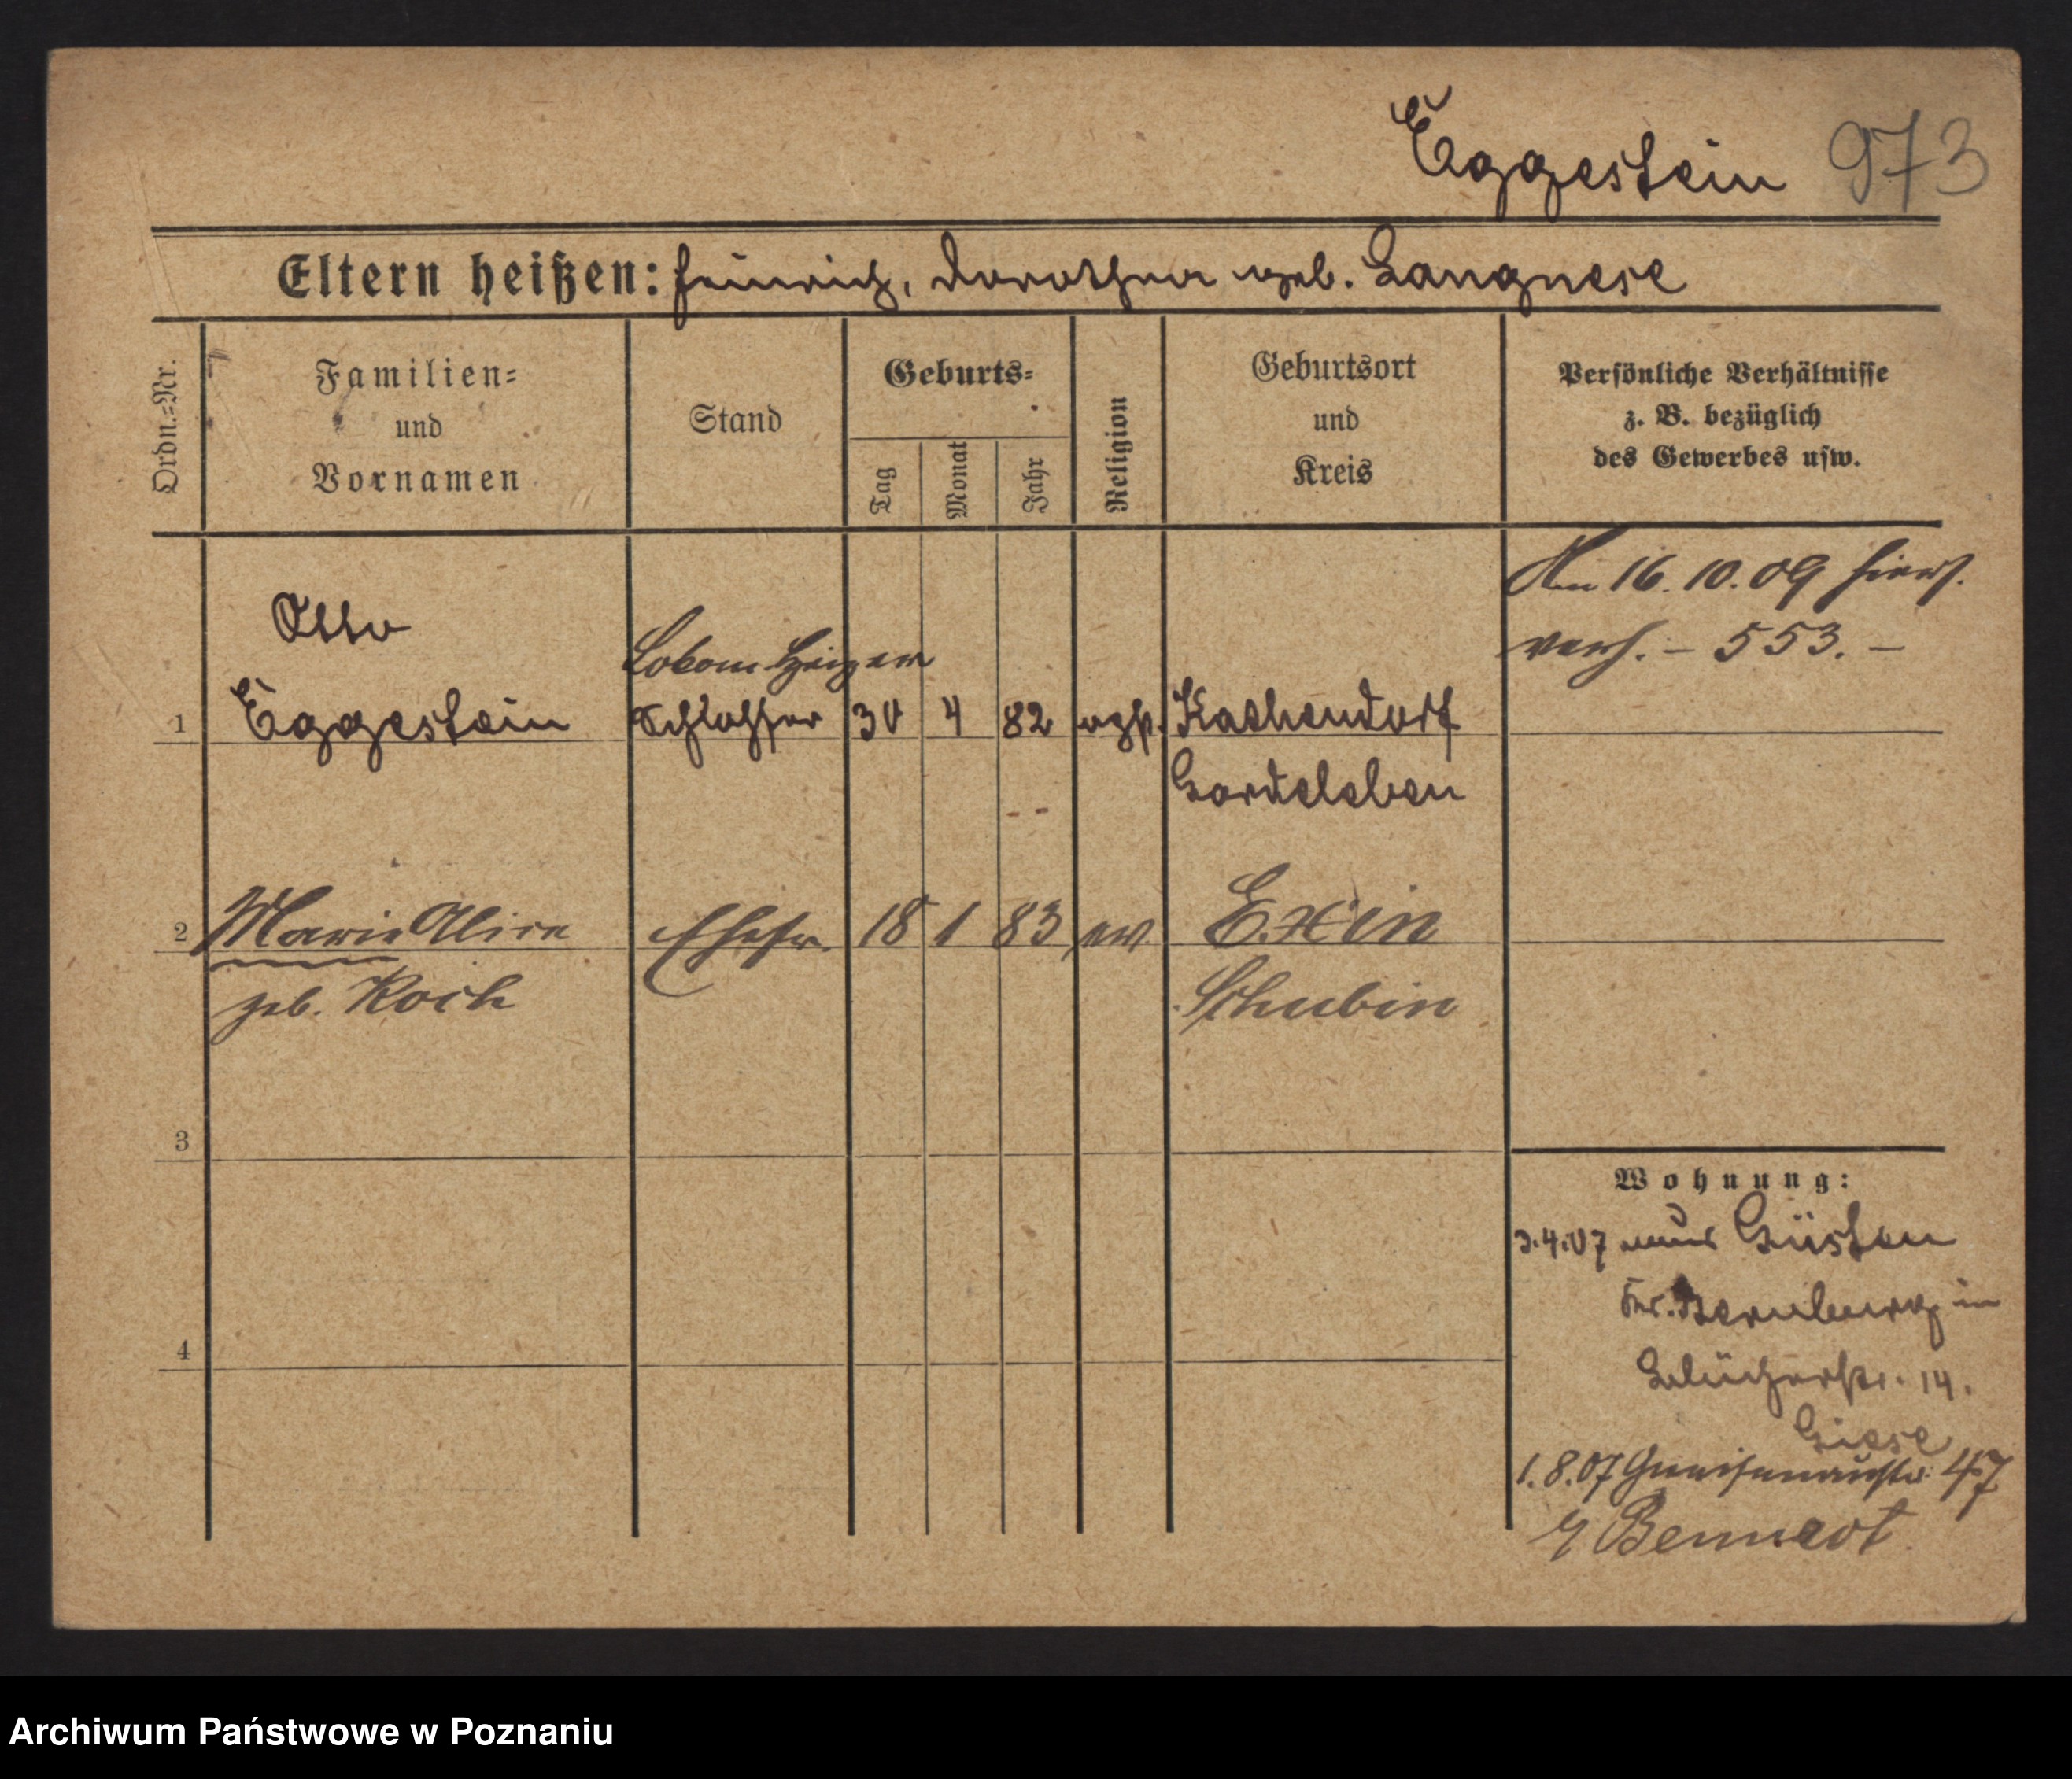 Eggestein 973
Eltern heißen: Heinrich, Dorothea geb. Langnese
Ordn.=Nr.
Familien=
und
Vornamen
Stand
Geburts=
Tag
Monat
Jahr
Religion
Geburtsort
und
Kreis
Persönliche Verhältnisse
z. B. bezüglich
des Gewerbes usw.
Am 16.10.09 hier
verh. – 553. –
Otto
Lokom Heizer
1 Eggestein Schlosser 30 4 82 Kathendorf
Gardeleben
2 Marie Alice Ehefr. 18 1 83 ev. Exin
geb. Koch Schubin
3
Wohnung:
3.4.07 aus Güsten
Kr. Bernburg in
4
Blücherstr. 14.
Giese
1.8.07 Gneisenaustr. 47
Bennedt
Archiwum Państwowe w Poznaniu